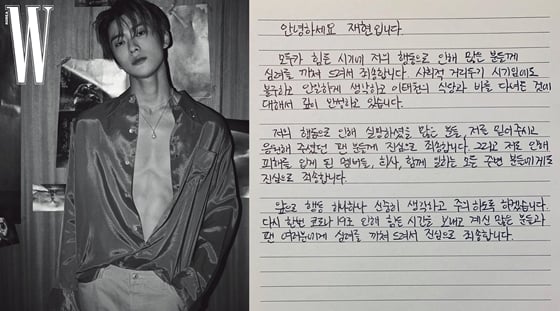 W
안녕하세요 재현입니다.
모두가 힘든 시기에 저의 행동으로 인해 많은 분들께
심려를 끼쳐 드려서 죄송합니다. 사회적 거리두기 시기임에도
불구하고 안일하게 생각하고 이태원의 식당과 바를 다녀온 것에
대해서 깊이 반성하고 있습니다.
저의 행동으로 인해 실망하셨을 많은 분들, 저를 믿어주시고
응원해 주셨던 팬 분들께 진심으로 죄송합니다. 그리고 저로 인해
피해를 입게 된 멤버들, 회사, 함께 일하는 모든 주변 분들에게도
진심으로 죄송합니다.
앞으로 행동 하나하나 신중히 생각하고 주의하도록 하겠습니다.
다시 한번 코로나 19로 인해 힘든 시간을 보내고 계신 많은 분들과
팬 여러분에게 심려를 끼쳐 드려서 진심으로 죄송합니다.